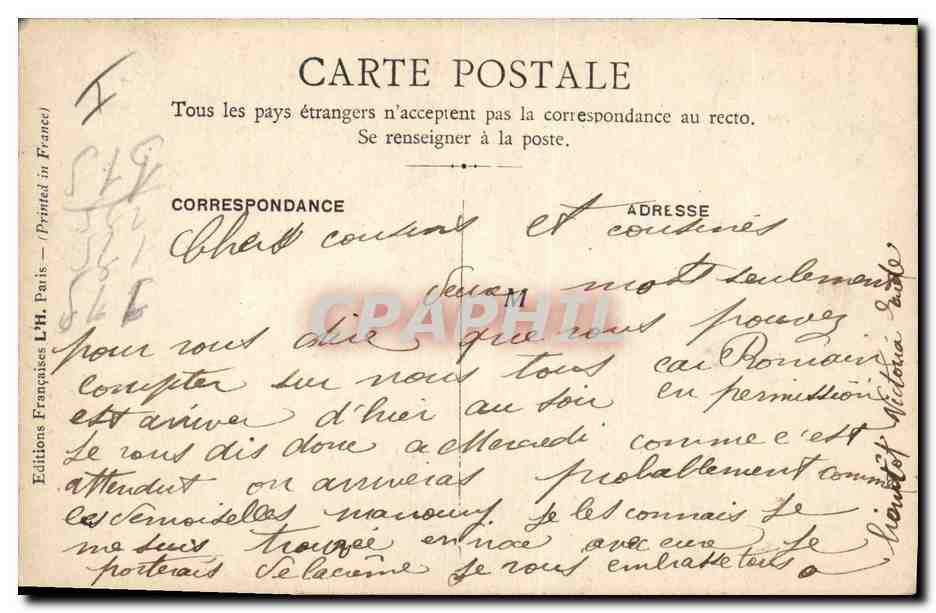 CARTE POSTALE
Tous les pays étrangers n'acceptent pas la correspondance au recto.
Se renseigner à la poste.
CORRESPONDANCE
ADRESSE
Editions Françaises L'H. Paris — (Printed in France)
I
Chers cousins et cousines
deux mots seulement
M
CPAPHIL
pour vous dire que vous pouvez
compter sur nous tous car Romain
est arriver d'hier au soir en permission
Je vous dis donc a Mercredi comme c'est
attendut on arriveras probablement comme
les demoiselles je les connais je
me suis trouvée avec je
porterais de la crème je vous embrasse tous
a bientôt Victoria